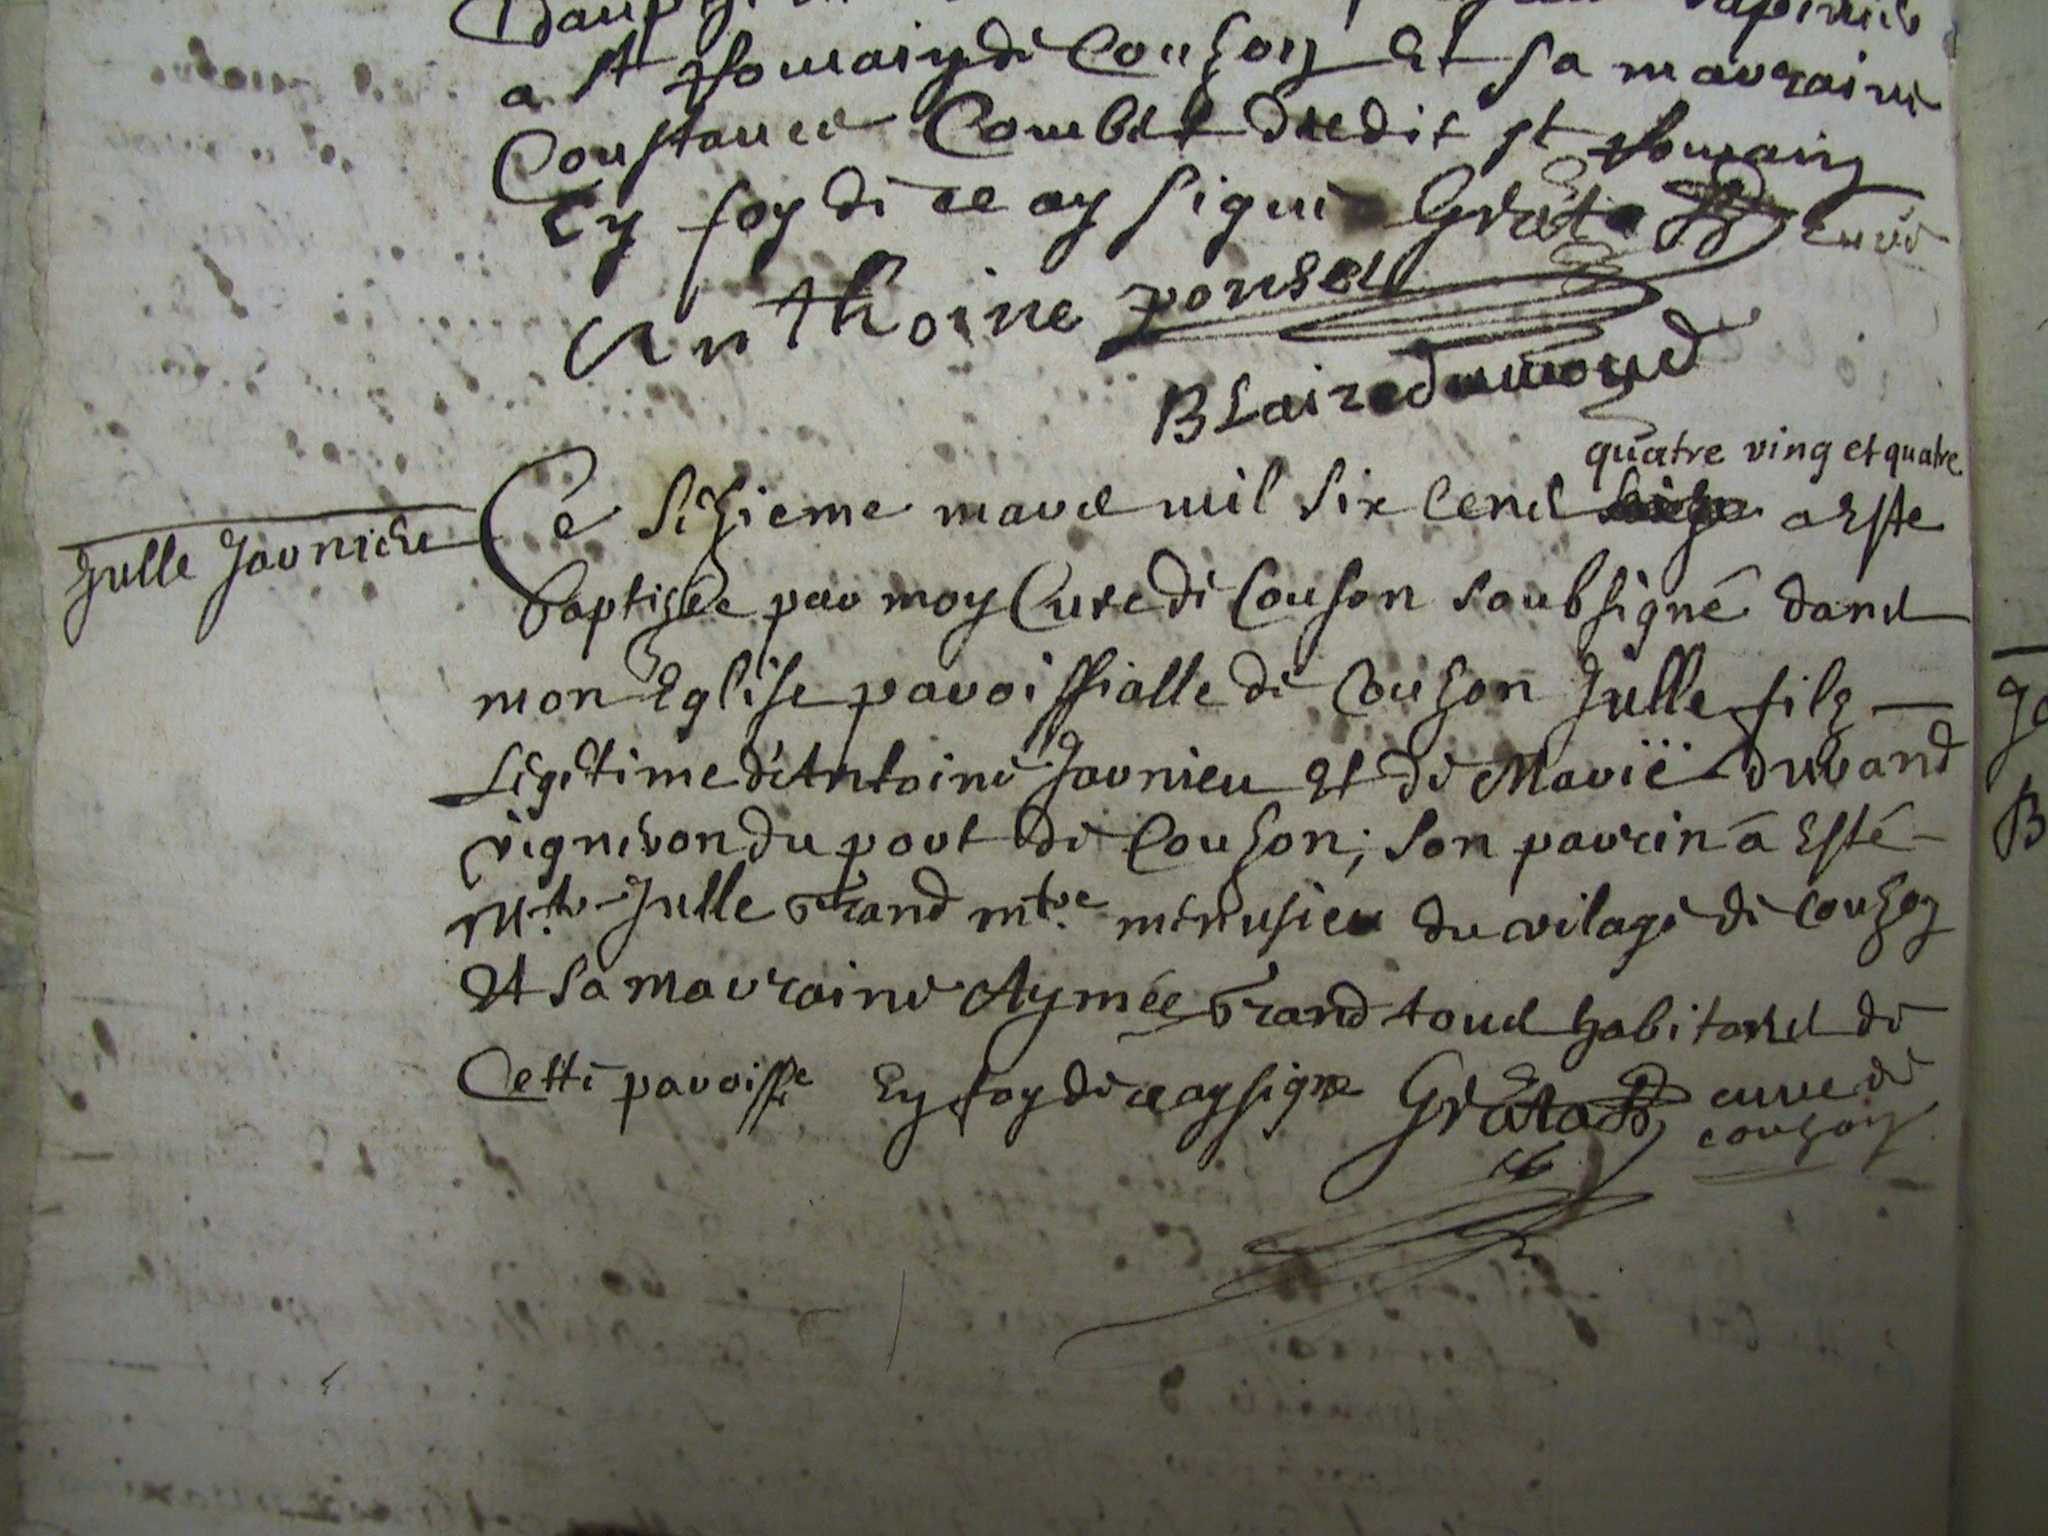 a St Romain de Couzon Et sa marraine
Constance Combet dudit St Romain
En foy de ce ay signé Grata curé
Anthoine ponset
BLaize dumond
quatre ving et quatre
Julle Jarnieu
Ce sizieme mars mil six cens a este
baptisée par moy Curé de Couson soubsigné dans
mon Eglise paroissialle de Couzon Julle filz
Legitime d'Antoine Jarnieu Et de Marië durand
vigneron du port de Couzon; son parrin á Esté
Mtre Julle Grand mtre menusier du vilage de Couzon
Et sa marraine Aymée Grand tous habitans de
Cette paroisse En foy de ce ay signe Grata curé de
couzon